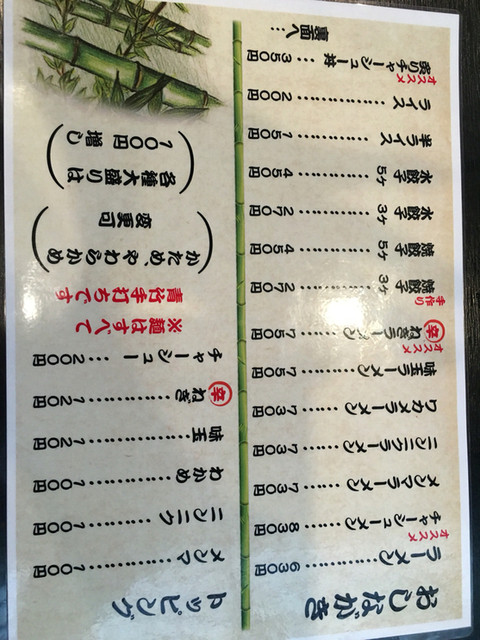 おしながき
ラーメン…………630円
オススメ
チャーシューメン…830円
メンマラーメン………730円
ニンニクラーメン………730円
ワカメラーメン………730円
味玉ラーメン…………750円
オススメ
辛ねぎラーメン………750円
手作り
焼餃子 3ヶ…………270円
焼餃子 5ヶ…………450円
水餃子 3ヶ…………270円
水餃子 5ヶ…………450円
半ライス……………150円
ライス………………200円
オススメ
炙りチャーシュー丼…350円
裏面へ…
トッピング
メンマ……………100円
ニンニク…………100円
わかめ……………100円
味玉………………120円
辛ねぎ……………120円
チャーシュー……200円
※麺はすべて
青竹手打ちです
(かため、やわらかめ
変更可)
(各種大盛りは
100円増し)